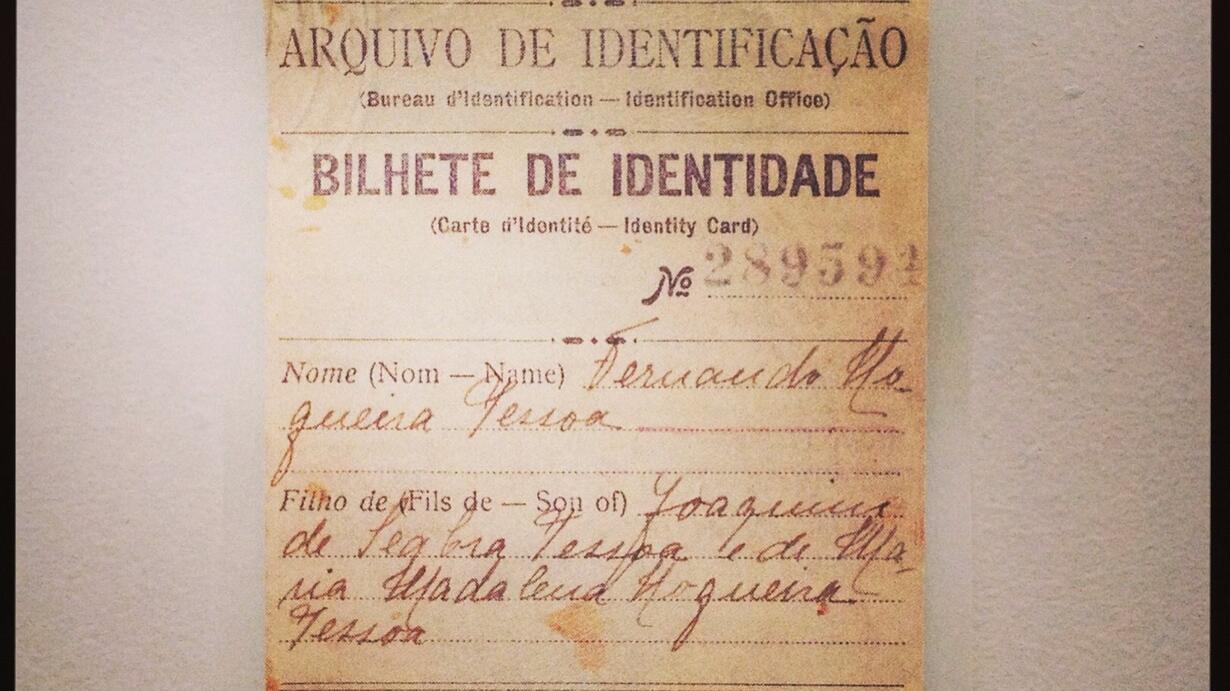 ARQUIVO DE IDENTIFICAÇÃO
(Bureau d'Identification — Identification Office)
BILHETE DE IDENTIDADE
(Carte d'Identité — Identity Card)
Nº 289594
Nome (Nom — Name) Fernando No-
gueira Pessoa
Filho de (Fils de — Son of) Joaquim
de Seabra Pessoa e de Ma-
ria Madalena Nogueira
Pessoa